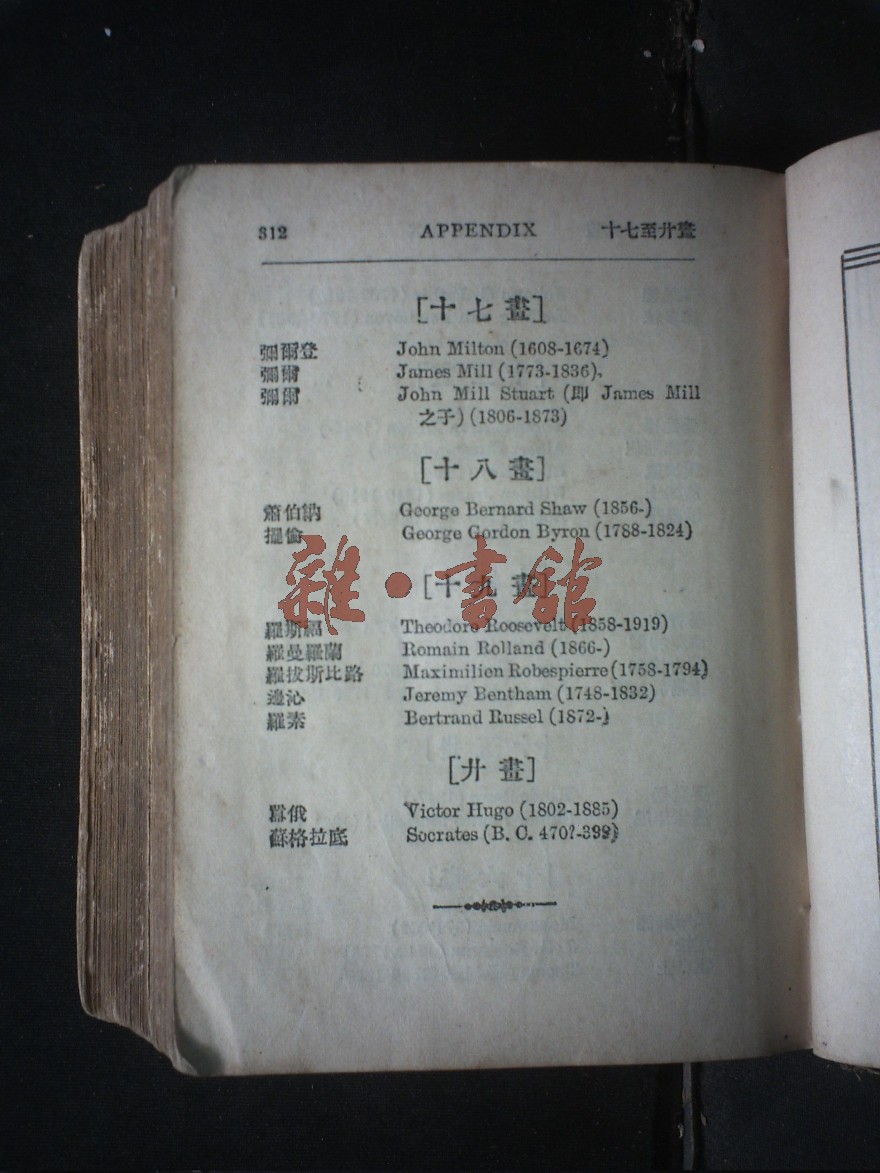 312 APPENDIX 十七至廾畫
[十七畫]
彌爾登 John Milton (1608-1674)
彌爾 James Mill (1773-1836),
彌爾 John Mill Stuart (即 James Mill
之子) (1806-1873)
[十八畫]
蕭伯訥 George Bernard Shaw (1856-)
擺倫 George Gordon Byron (1788-1824)
[十九畫]
羅斯福 Theodore Roosevelt (1858-1919)
羅曼羅蘭 Romain Rolland (1866-)
羅拔斯比路 Maximilien Robespierre (1758-1794)
邊沁 Jeremy Bentham (1748-1832)
羅素 Bertrand Russel (1872-)
[廾畫]
囂俄 Victor Hugo (1802-1885)
蘇格拉底 Socrates (B. C. 470?-399)
雜·書館